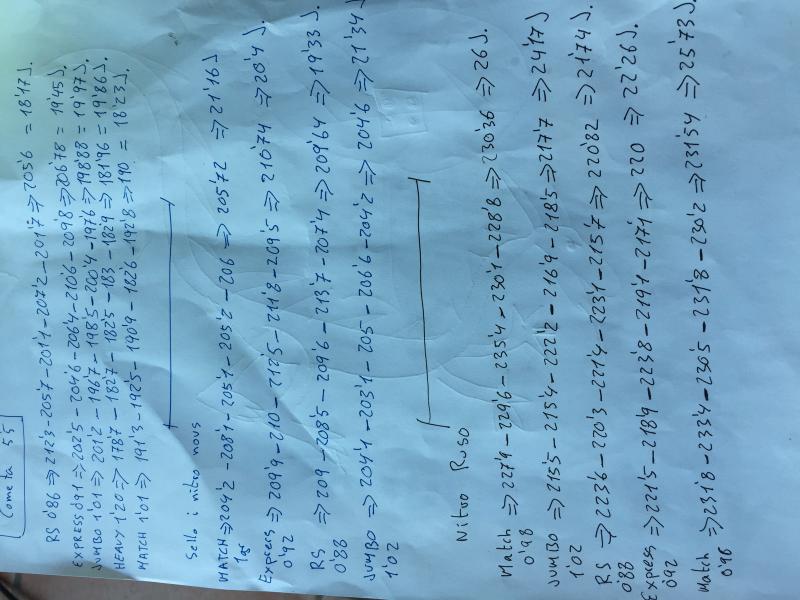 Cometa 55
RS 0'86 => 212'3 - 205'7 - 201'1 - 207'2 - 201'7 => 205'6 = 18'17 J.
EXPRESS 0'91 => 202'5 - 204'6 - 206'4 - 210'6 - 209'8 => 206'78 = 19'45 J.
JUMBO 1'01 => 201'2 - 196'7 - 198'5 - 200'4 - 197'6 => 198'88 = 19'97 J.
HEAVY 1'20 => 178'7 - 182'7 - 182'5 - 183 - 182'9 => 181'96 = 19'86 J.
MATCH 1'01 => 191'3 - 192'5 - 190'9 - 182'6 - 192'8 => 190 = 18'23 J.
Sello i nitro nous
MATCH => 204'2 - 208'1 - 205'1 - 205'2 - 206 => 205'72 => 21'16 J
Express => 209'9 - 210 - 212'5 - 211'8 - 209'5 => 210'74 => 20'4 J.
0'92
RS => 209 - 208'5 - 209'6 - 213'7 - 207'4 => 209'64 => 19'33 J.
0'88
JUMBO => 204'1 - 203'1 - 205 - 206'6 - 204'2 => 204'6 => 21'34 J
1'02
Nitro Ruso
Match => 227'9 - 229'6 - 235'4 - 230'1 - 228'8 => 230'36 => 26 J.
0'98
JUMBO => 215'5 - 215'4 - 222'2 - 216'9 - 218'5 => 217'7 => 24'17 J.
1'02
RS => 223'6 - 220'3 - 221'4 - 223'1 - 215'7 => 220'82 => 21'74 J.
0'88
Express => 221'5 - 218'9 - 223'8 - 219'1 - 217'1 => 220 => 22'26 J.
0'92
Match => 231'8 - 233'4 - 230'5 - 231'8 - 230'2 => 231'54 => 25'73 J.
0'96